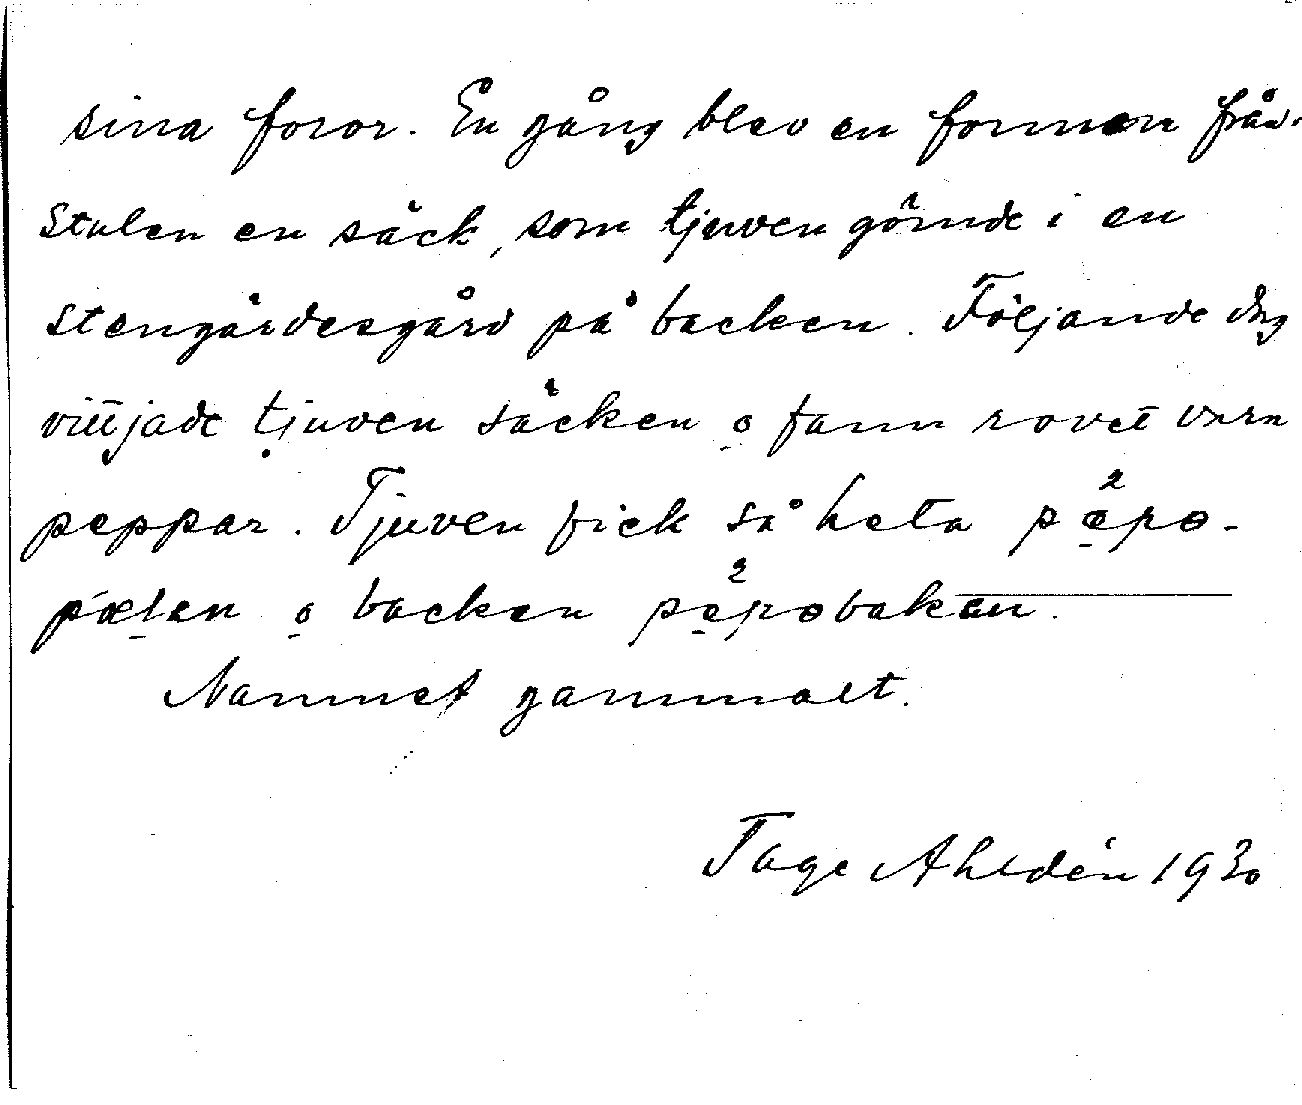 sina foror. En gång blev en forman från-
stulen en säck, som tjuven gömde i en
stengärdesgård på backen. Följande dag
vittjade tjuven säcken o fann rovet vara
peppar. Tjuven fick så heta pępə-
pætən o backen pępəbakən.
Namnet gammalt.
Tage Ahldén 1930